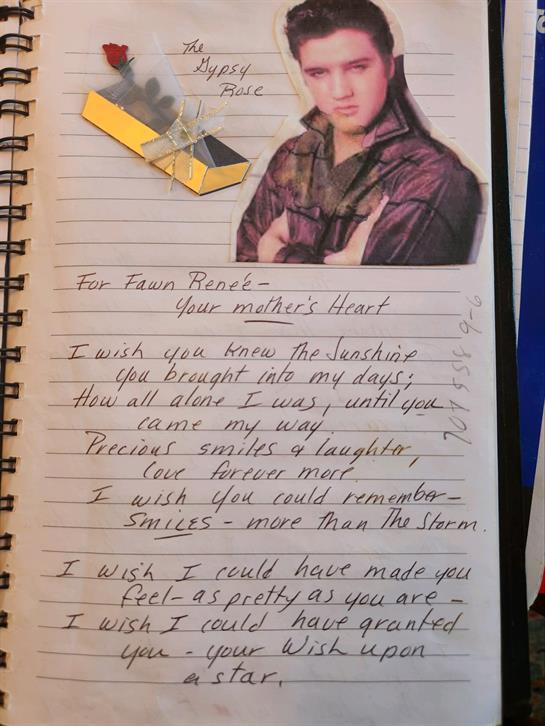 The
Gypsy
Rose
For Fawn Reneé –
Your mother's Heart
I wish you knew the Sunshine
you brought into my days;
How all alone I was, until you
came my way.
Precious smiles & laughter,
love forever more
I wish you could remember –
Smiles – more than the storm.
I wish I could have made you
feel – as pretty as you are –
I wish I could have granted
you – your wish upon
a star.